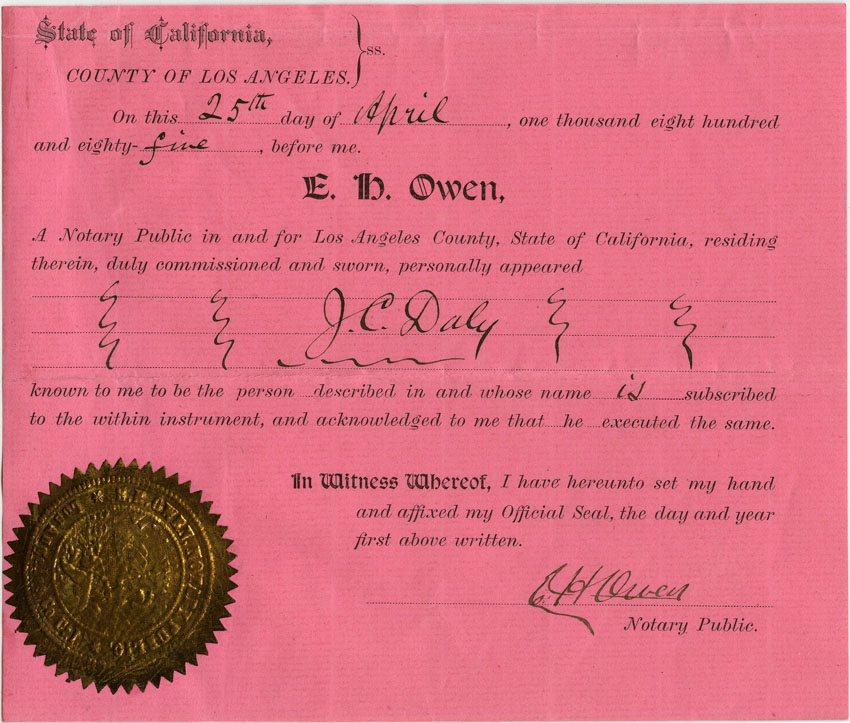 State of California,
ss.
COUNTY OF LOS ANGELES.
On this 25th day of April, one thousand eight hundred
and eighty-five, before me.
E. H. Owen,
A Notary Public in and for Los Angeles County, State of California, residing
therein, duly commissioned and sworn, personally appeared
J. C. Daly
known to me to be the person described in and whose name is subscribed
to the within instrument, and acknowledged to me that he executed the same.
In Witness Whereof, I have hereunto set my hand
and affixed my Official Seal, the day and year
first above written.
E H Owen
Notary Public.